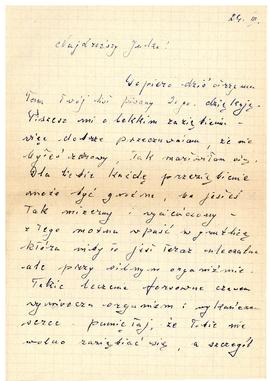 24. III.
Najdroższy Jurku!
Dopiero dziś otrzyma
łam Twój list pisany 20 go. dziękuję.
Piszesz mi o lekkim zaziębieniu
więc dobrze przeczuwałam, że nie
byłeś zdrowy, tak martwiłam się.
Dla Ciebie każde przeziębienie
może być groźne, bo jesteś
tak mizerny i wyniszczony
z tego można wpaść w gruźlicę
która niby to jest teraz uleczalna
ale przy silnym organizmie.
Takie leczenie forsowne czasem
wyniszcza organizm i wykańcza
serce. pamiętaj, że Tobie nie
wolno zaziębiać się, a szczegól